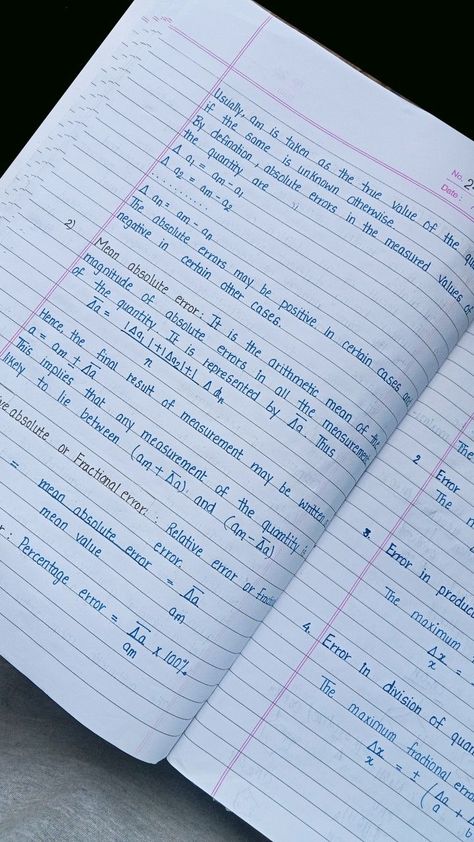 No. 2
Date:
Usually, am is taken as the true value of the qua
if the same is unknown otherwise.
By defination, absolute errors in the measured values of
the quantity are
Δ a1 = am - a1
Δ a2 = am - a2
...........
Δ an = am - an
The absolute errors may be positive in certain cases an
negative in certain other cases.
2) Mean absolute error: It is the arithmetic mean of the
magnitude of absolute errors in all the measurement
of the quantity. It is represented by Δa. Thus
Δa = |Δa1|+|Δa2|+| Δ an
n
Hence, the final result of measurement may be written
a = am ± Δa
This implies that any measurement of the quantity is
likely to lie between (am + Δa) and (am - Δa)
ve absolute or Fractional error: Relative error or fracti
error.
= mean absolute error = Δa
mean value am
r: Percentage error = Δa x 100%
am
The
2 Error
The m
3. Error in produc
The maximum
Δx
x =
4. Error in division of quan
The maximum fractional erro
Δx = ± (Δa + Δ
x a b